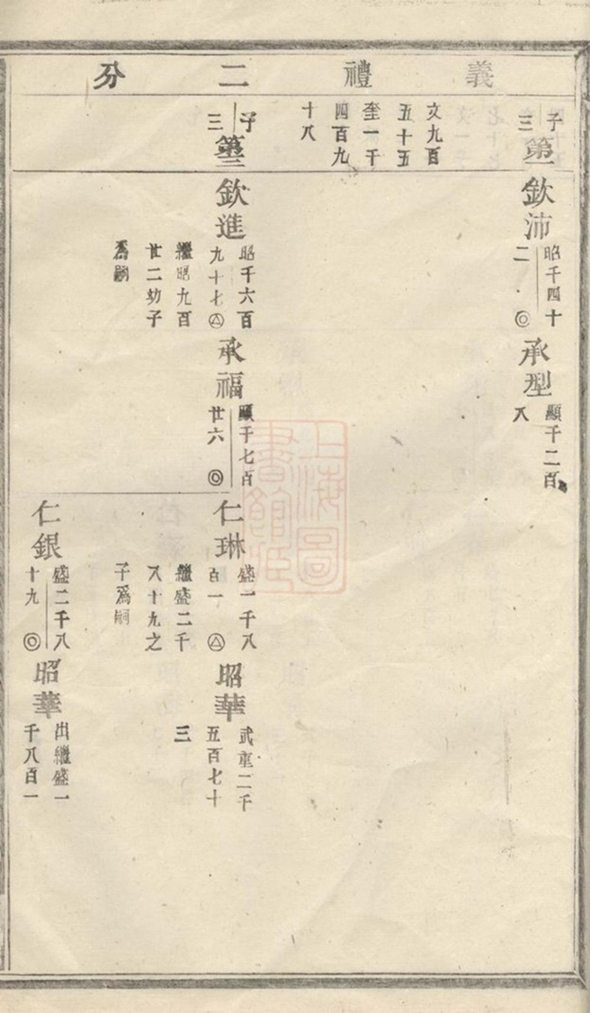 義禮二分
子三
第一
文九百
五十五
奎一千
四百九
十八
子三
第三
欽沛
昭千四十
二
承型
顯千二百
八
欽進
昭千六百
九十七
繼昭九百
廿二幼子
爲嗣
承福
顯千七百
廿六
仁琳
盛一千八
百一
繼盛二千
八十九之
子爲嗣
昭華
武重二千
五百七十
三
仁銀
盛二千八
十九
昭華
出繼盛一
千八百一
上海圖
書館藏